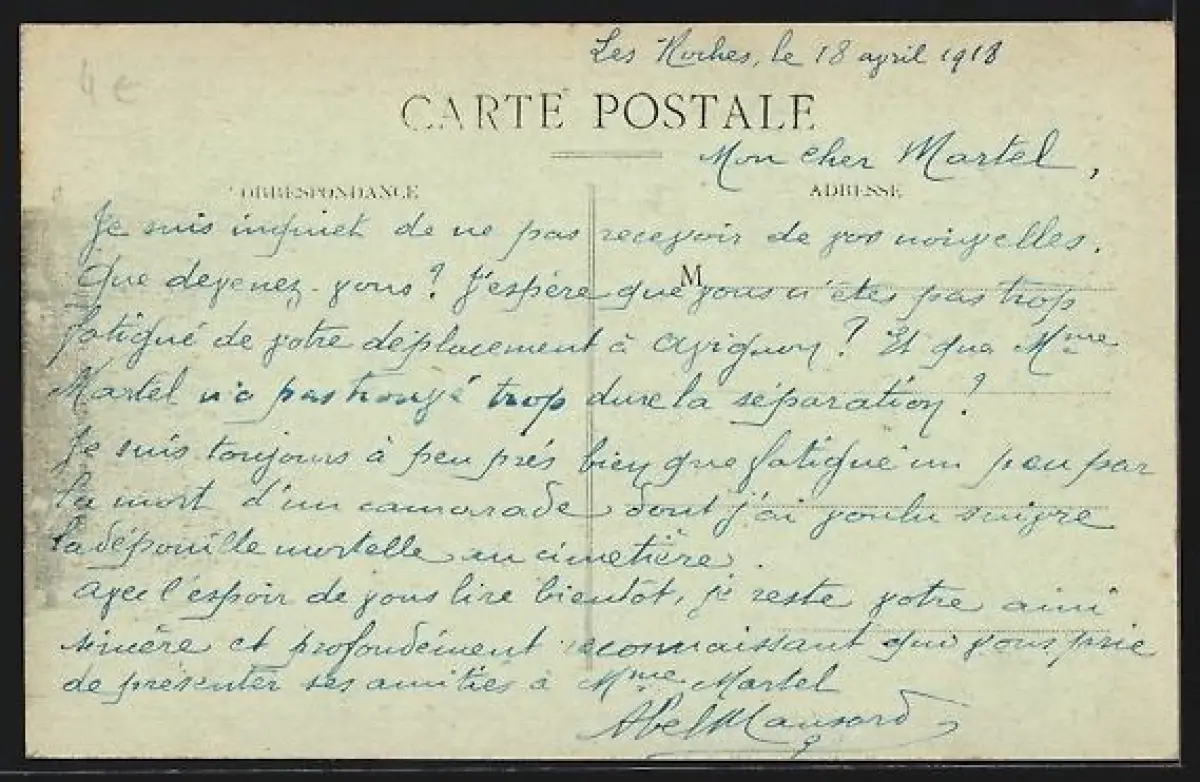 4 €
Les Roches, le 18 avril 1918
CARTE POSTALE
Mon cher Martel,
CORRESPONDANCE
ADRESSE
Je suis inquiet de ne pas recevoir de vos nouvelles.
M
Que devenez-vous ? J'espère que vous n'êtes pas trop
fatigué de votre déplacement à Avignon ? Et que Mme
Martel n'a pas trouvé trop dure la séparation ?
Je suis toujours à peu près bien que fatigué un peu par
la mort d'un camarade dont j'ai voulu suivre
la dépouille mortelle au cimetière.
Avec l'espoir de vous lire bientôt, je reste votre ami
sincère et profondément reconnaissant qui vous prie
de présenter ses amitiés à Mme Martel
Abel